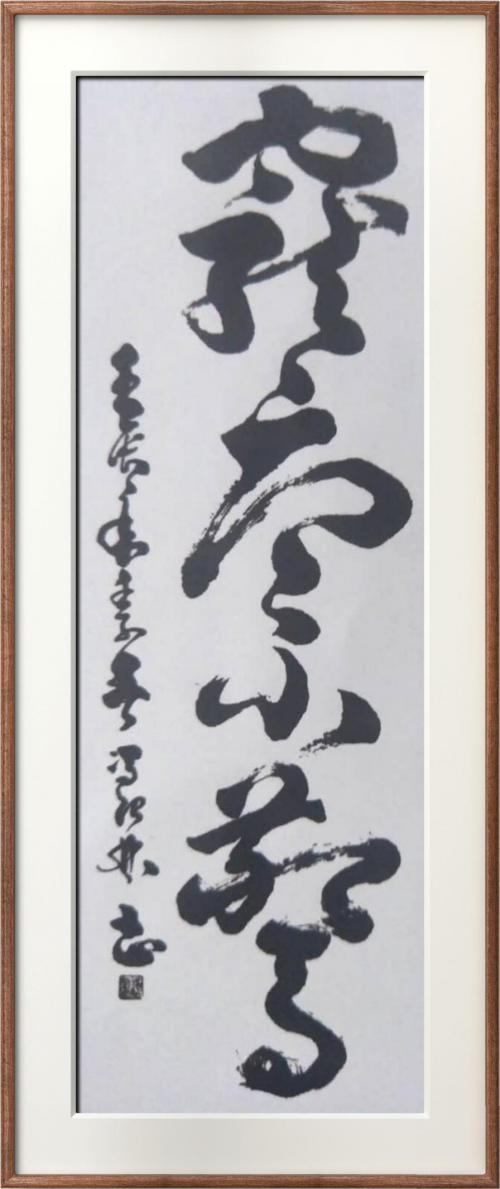 寵辱不驚
壬辰年季春